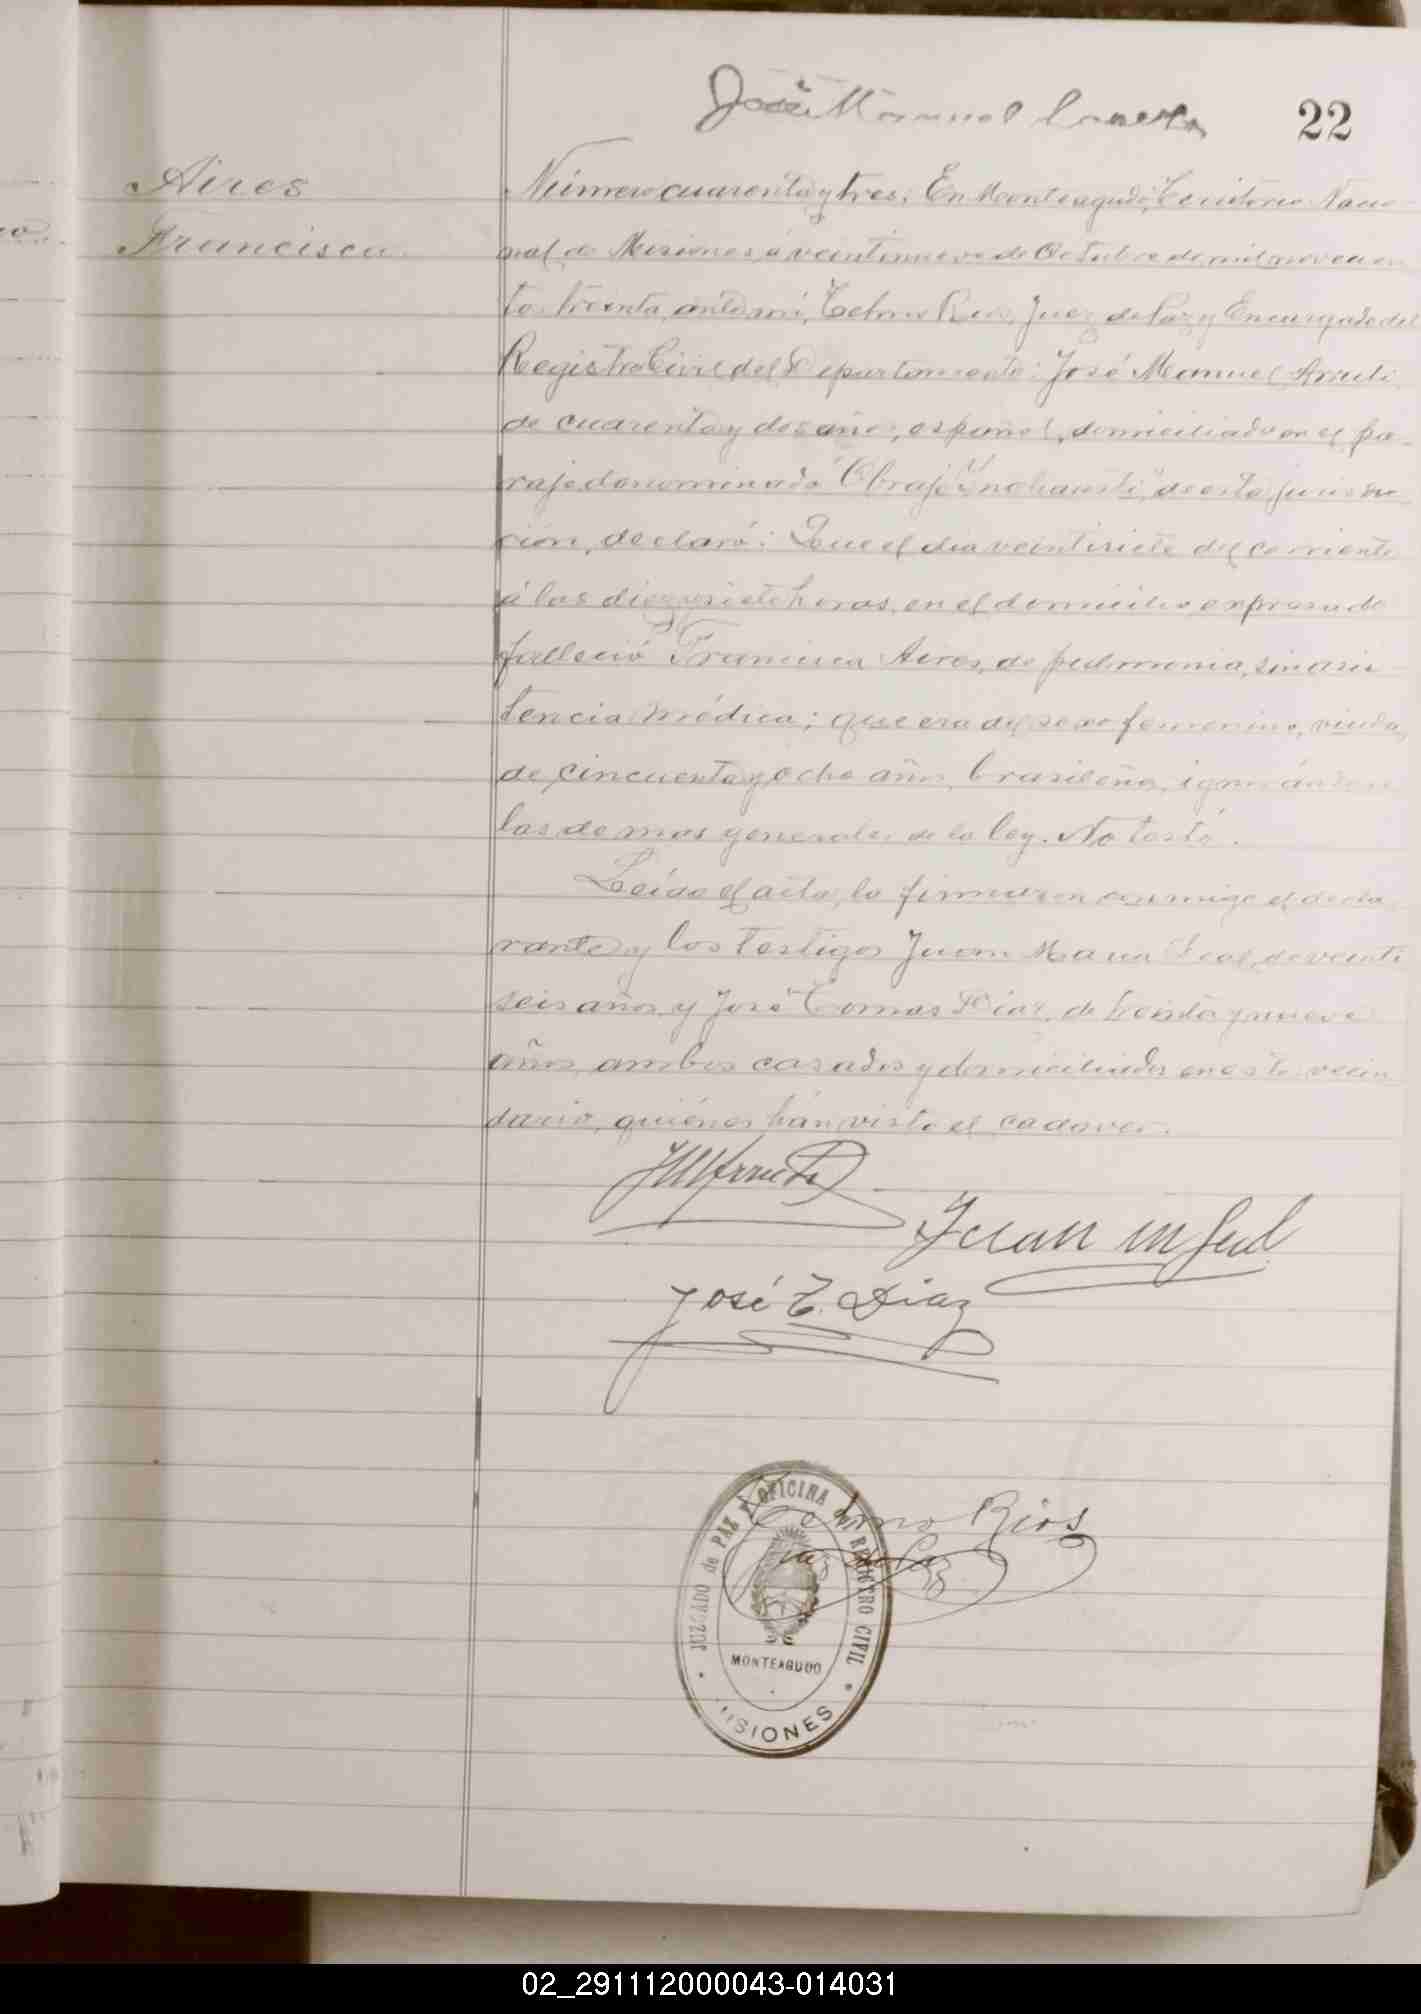 José Manuel
22
Aires
Francisca.
Número cuarenta y tres: En Monteagudo, Territorio Nacio-
nal de Misiones, á veintinueve de Octubre de mil novecien
tos treinta, ante mí, Telmo Rios, Juez de Paz y Encargado del
Registro Civil del Departamento: José Manuel Arruti
de cuarenta y dos años, español, domiciliado en el pa-
raje denominado "Obraje Inchausti", de esta jurisdic
ción, declaró: Que el dia veintisiete del corriente
á las diez y siete horas, en el domicilio expresado
falleció Francisca Aires, de pulmonia, sin asis
tencia médica; que era del sexo femenino, viuda,
de cincuenta y ocho años, brasileña, ignorándose
las demas generales de la ley. No testó.
Leida el acta, la firmaron conmigo el decla
rante y los testigos Juan Maria Leal, de veinti
seis años y José Tomas Diaz, de treinta y nueve
años, ambos casados y domiciliados en este vecin
dario, quiénes hán visto el cadaver.
JMArruti
Juan M Leal
José T. Diaz
Telmo Rios
Juez de Paz
JUZGADO de PAZ y OFICINA del REGISTRO CIVIL
MONTEAGUDO
MISIONES
02_291112000043-014031